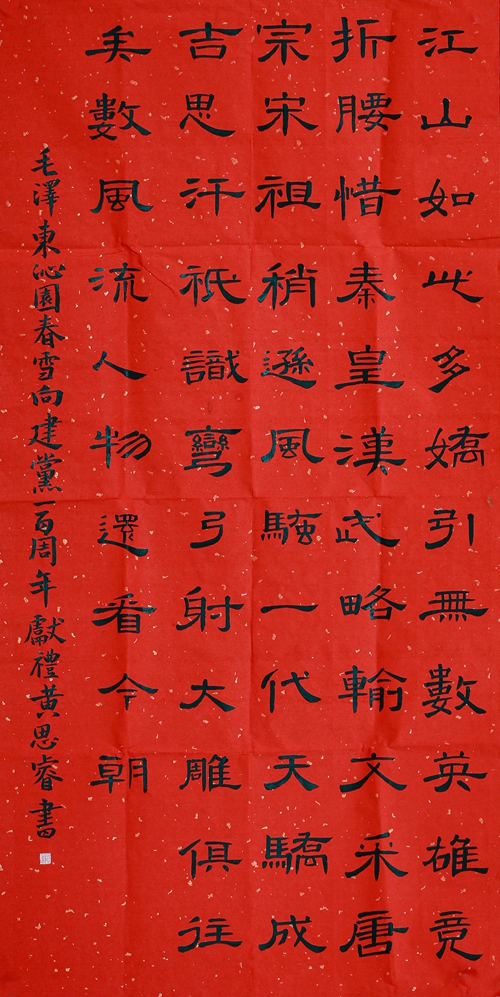 江山如此多嬌引無數英雄竟
折腰惜秦皇漢武略輸文采唐
宗宋祖稍遜風騷一代天驕成
吉思汗祇識彎弓射大雕俱往
矣數風流人物還看今朝
毛澤東沁園春雪向建黨一百周年獻禮黃思睿書